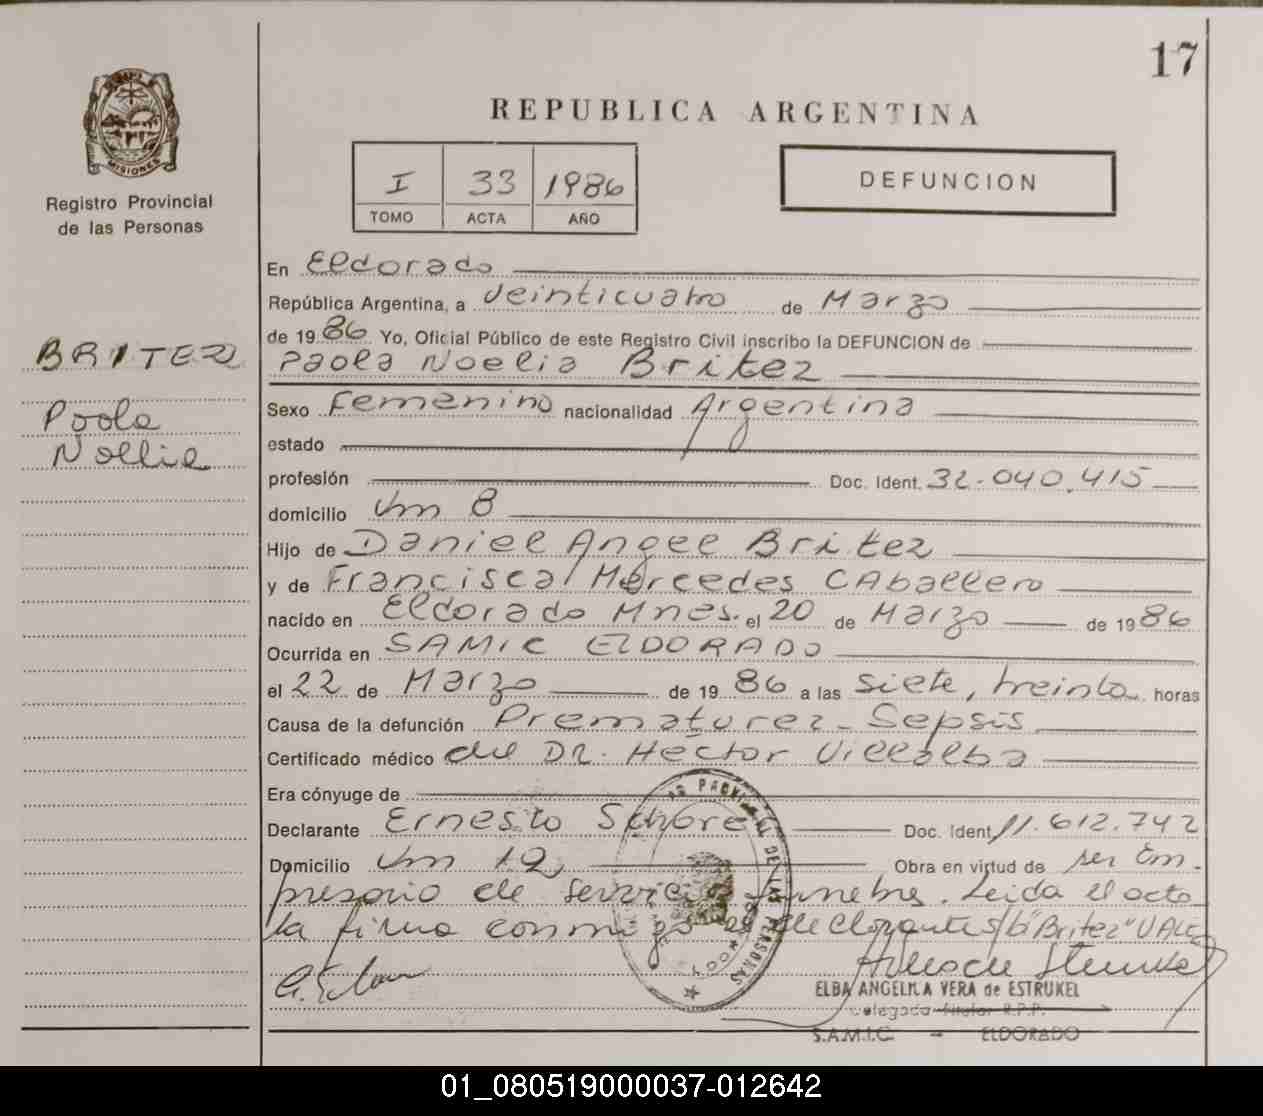 17
REPUBLICA ARGENTINA
MISIONES
Registro Provincial
de las Personas
I 33 1986
TOMO ACTA AÑO
DEFUNCION
BRITEZ
Paola
Noelia
En Eldorado
República Argentina, a veinticuatro de Marzo
de 1986 Yo, Oficial Público de este Registro Civil inscribo la DEFUNCION de
Paola Noelia Britez
Sexo Femenino nacionalidad Argentina
estado
profesión Doc. Ident. 32.040.415
domicilio Km 8
Hijo de Daniel Angel Britez
y de Francisca Mercedes CAballero
nacido en Eldorado Mnes. el 20 de Marzo de 1986
Ocurrida en SAMIC ELDORADO
el 22 de Marzo de 1986 a las siete, treinta horas
Causa de la defunción Prematurez - Sepsis
Certificado médico del DR. Héctor Villalba
Era cónyuge de
Declarante Ernesto Doc. Ident. 11.612.742
Domicilio Km 12 Obra en virtud de ser Em-
presario de servicio funebre. Leida el acta
la firma conmigo el declarante s/b "Britez" VALE
ELBA ANGELICA VERA de ESTRUKEL
Delegada Titular R.P.P.
S.A.M.I.C. - ELDORADO
01_080519000037-012642